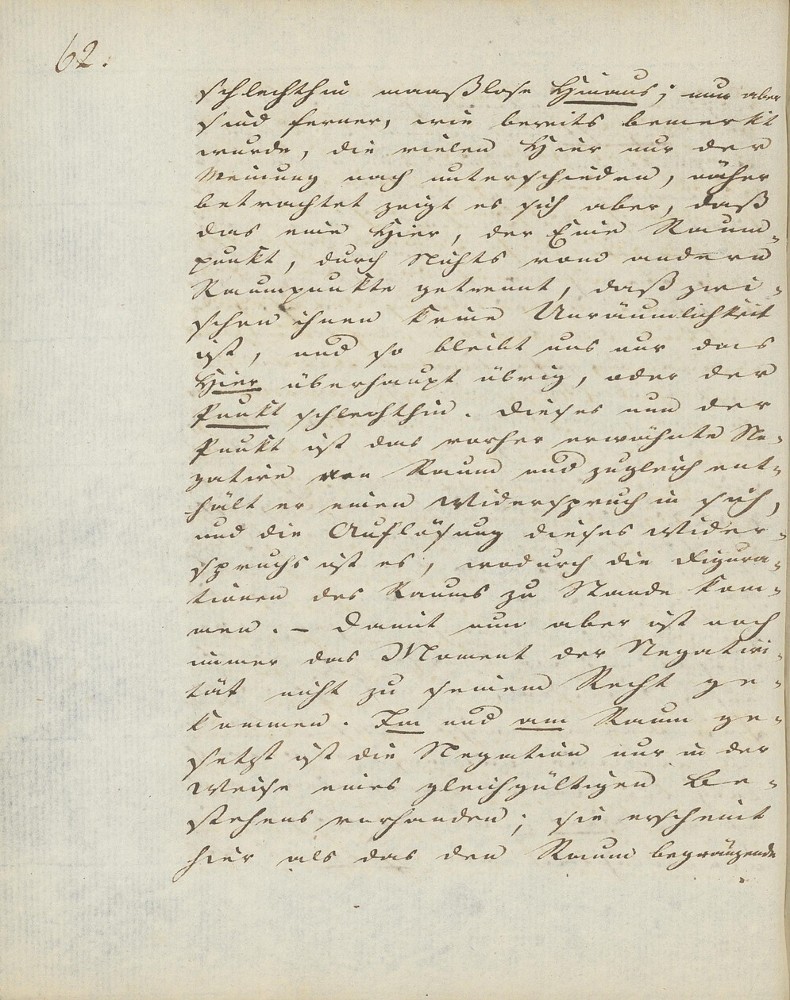 62.
schlechthin maaßlose Hinaus; nun aber
sind ferner, wie bereits bemerkt
wurde, die vielen Hier nur der
Meinung nach unterschieden, näher
betrachtet zeigt es sich aber, daß
das eine Hier, der Eine Raum-
punkt, durch Nichts vom andern
Raumpunkte getrennt, daß zwi-
schen ihnen keine Unräumlichkeit
ist, und so bleibt uns nur das
Hier überhaupt übrig, oder der
Punkt schlechthin. Dieses nun der
Punkt ist das vorher erwähnte Ne-
gative von Raum und zugleich ent-
hält er einen Widerspruch in sich,
und die Auflösung dieses Wider-
spruchs ist es, wodurch die Figura-
tionen des Raums zu Stande kom-
men. – Damit nun aber ist noch
immer das Moment der Negativi-
tät nicht zu seinem Recht ge-
kommen. Im und am Raum ge-
setzt ist die Negation nur in der
Weise eines gleichgültigen Be-
stehens vorhanden; sie erscheint
hier als das den Raum begränzende